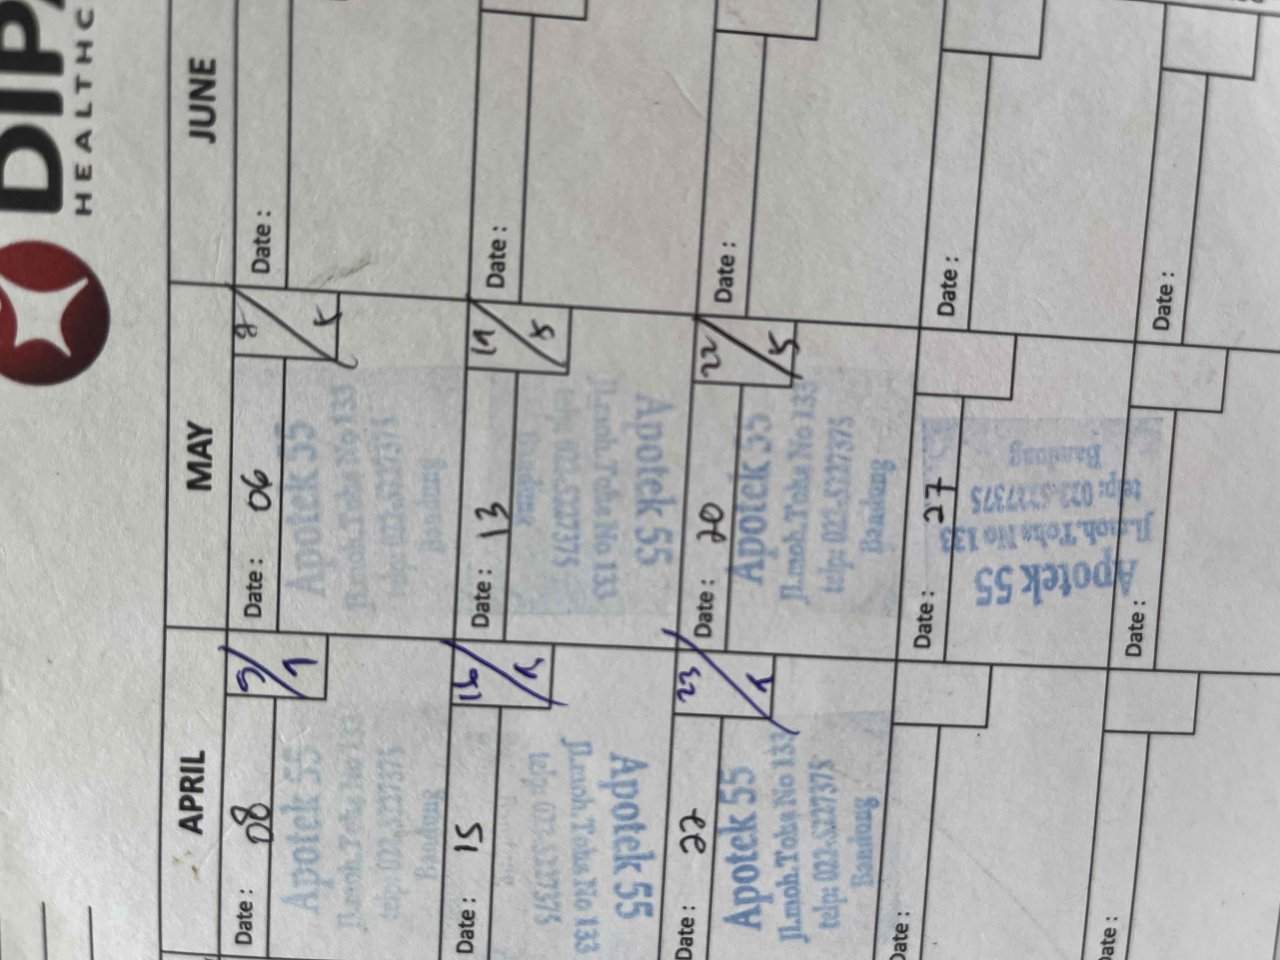 HEALTHC
APRIL
MAY
JUNE
Date : 08
Date : 06
Date :
Apotek 55
Jl.moh.Toha No 133
telp: 022-5227375
Bandung
Apotek 55
Jl.moh.Toha No 133
telp: 022-5227375
Bandung
Date : 15
16/
Date : 13
19/5
Date :
telp: 022-5227375
Jl.moh.Toha No 133
Apotek 55
telp: 022-5227375
Jl.moh.Toha No 133
Apotek 55
Date : 22
23/
Date : 20
22/5
Date :
Apotek 55
Jl.moh.Toha No 133
telp: 022-5227375
Bandung
Apotek 55
Jl.moh.Toha No 133
telp: 022-5227375
Bandung
Date :
Date : 27
Date :
Apotek 55
Jl.moh.Toha No 133
telp: 022-5227375
Bandung
Date :
Date :
Date :